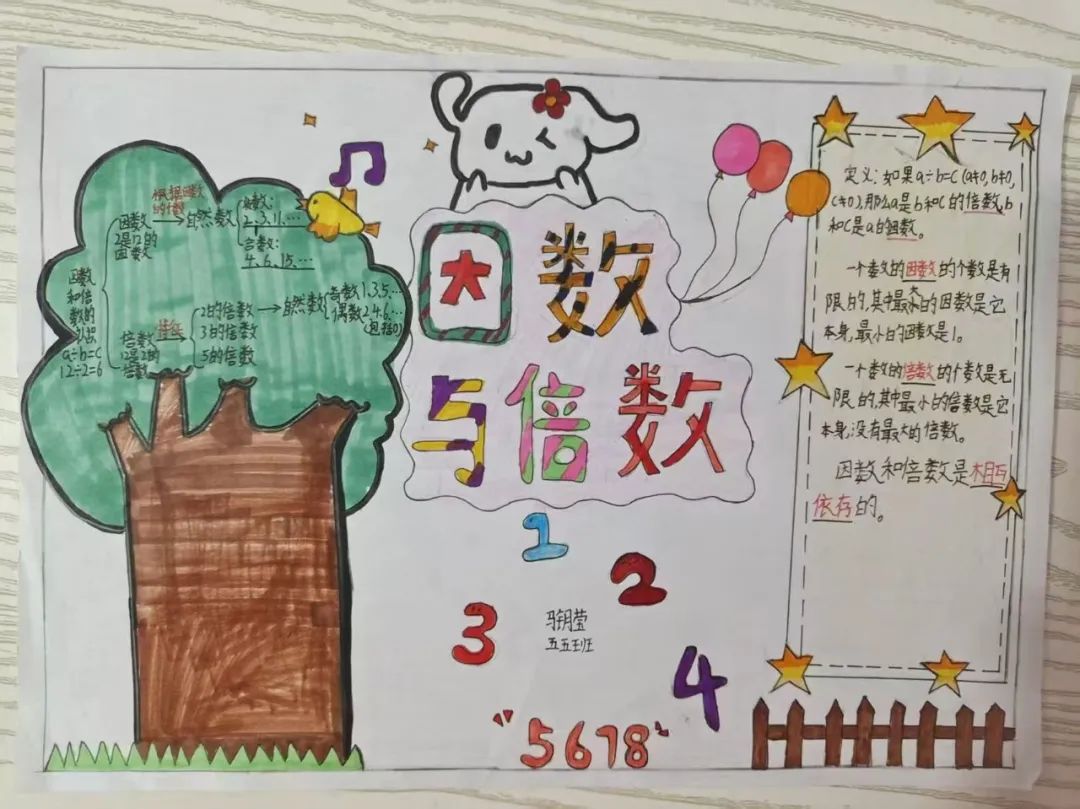 因数
与倍数
根据因数
的个数
因数
2是12的
因数
自然数
质数:
2.3.11.…
合数:
4.6.15.…
因数
和倍
数的
认识
a÷b=c
12÷2=6
倍数
12是2的
倍数
特征
2的倍数
3的倍数
5的倍数
自然数
奇数1.3.5.…
偶数2.4.6.…
(包括0)
定义:如果a÷b=c(a≠0,b≠0,
c≠0),那么a是b和c的倍数,b
和c是a的因数。
一个数的因数的个数是有
限的,其中最大的因数是它
本身,最小的因数是1。
一个数的倍数的个数是无
限的,其中最小的倍数是它
本身,没有最大的倍数。
因数和倍数是相互
依存的。
1
2
3
4
"5678"